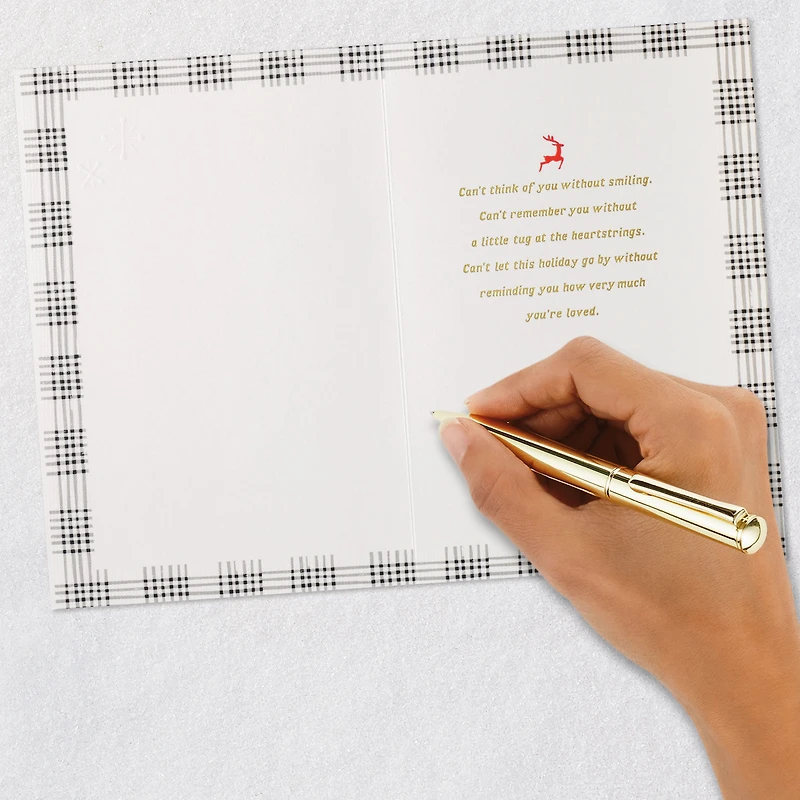 Can't think of you without smiling.
Can't remember you without
a little tug at the heartstrings.
Can't let this holiday go by without
reminding you how very much
you're loved.